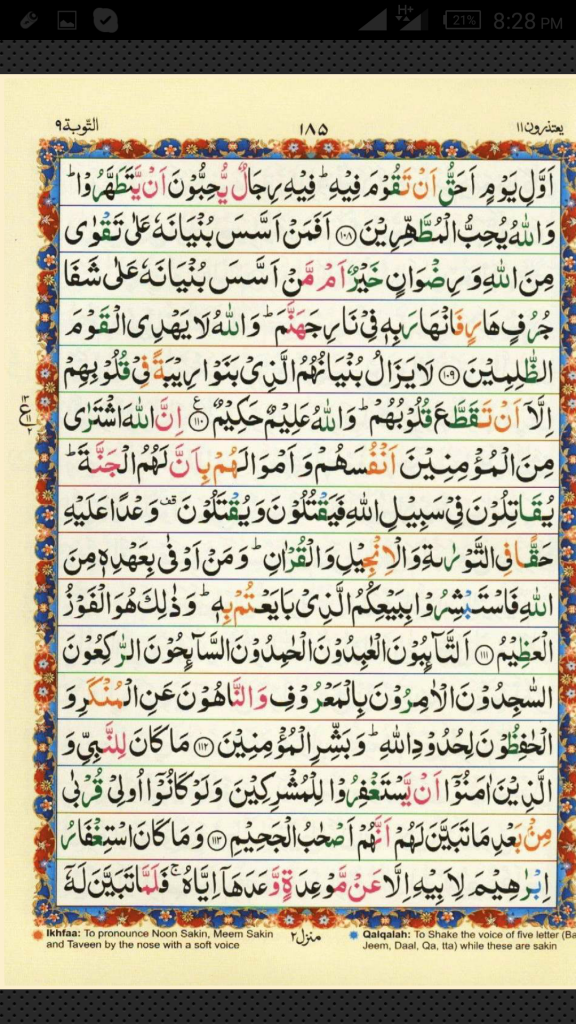 21% 8:28 PM
H+
يعتذرون ١١
١٨٥
التّوبة ٩
اَوَّلِ يَوْمٍ اَحَقُّ اَنْ تَقُوْمَ فِيْهِ ؕ فِيْهِ رِجَالٌ يُّحِبُّوْنَ اَنْ يَّتَطَهَّرُوْا ؕ
وَاللّٰهُ يُحِبُّ الْمُطَّهِّرِيْنَ ﴿۱۰۸﴾ اَفَمَنْ اَسَّسَ بُنْيَانَهٗ عَلٰى تَقْوٰى
مِنَ اللّٰهِ وَ رِضْوَانٍ خَيْرٌ اَمْ مَّنْ اَسَّسَ بُنْيَانَهٗ عَلٰى شَفَا
جُرُفٍ هَارٍ فَانْهَارَ بِهٖ فِيْ نَارِ جَهَنَّمَ ؕ وَاللّٰهُ لَا يَهْدِى الْقَوْمَ
الظّٰلِمِيْنَ ﴿۱۰۹﴾ لَا يَزَالُ بُنْيَانُهُمُ الَّذِيْ بَنَوْا رِيْبَةً فِيْ قُلُوْبِهِمْ
اِلَّاۤ اَنْ تَقَطَّعَ قُلُوْبُهُمْ ؕ وَاللّٰهُ عَلِيْمٌ حَكِيْمٌ ﴿۱۱۰﴾ ع اِنَّ اللّٰهَ اشْتَرٰى
مِنَ الْمُؤْمِنِيْنَ اَنْفُسَهُمْ وَ اَمْوَالَهُمْ بِاَنَّ لَهُمُ الْجَنَّةَ ؕ
يُقَاتِلُوْنَ فِيْ سَبِيْلِ اللّٰهِ فَيَقْتُلُوْنَ وَ يُقْتَلُوْنَ قف وَعْدًا عَلَيْهِ
حَقًّا فِى التَّوْرٰىةِ وَالْاِنْجِيْلِ وَالْقُرْاٰنِ ؕ وَمَنْ اَوْفٰى بِعَهْدِهٖ مِنَ
اللّٰهِ فَاسْتَبْشِرُوْا بِبَيْعِكُمُ الَّذِيْ بَايَعْتُمْ بِهٖ ؕ وَذٰلِكَ هُوَ الْفَوْزُ
الْعَظِيْمُ ﴿۱۱۱﴾ اَلتَّآىِٕبُوْنَ الْعٰبِدُوْنَ الْحٰمِدُوْنَ السَّآىِٕحُوْنَ الرّٰكِعُوْنَ
السّٰجِدُوْنَ الْاٰمِرُوْنَ بِالْمَعْرُوْفِ وَالنَّاهُوْنَ عَنِ الْمُنْكَرِ وَ
الْحٰفِظُوْنَ لِحُدُوْدِ اللّٰهِ ؕ وَبَشِّرِ الْمُؤْمِنِيْنَ ﴿۱۱۲﴾ مَا كَانَ لِلنَّبِيِّ وَ
الَّذِيْنَ اٰمَنُوْۤا اَنْ يَّسْتَغْفِرُوْا لِلْمُشْرِكِيْنَ وَلَوْ كَانُوْۤا اُولِيْ قُرْبٰى
مِنْۢ بَعْدِ مَا تَبَيَّنَ لَهُمْ اَنَّهُمْ اَصْحٰبُ الْجَحِيْمِ ﴿۱۱۳﴾ وَمَا كَانَ اسْتِغْفَارُ
اِبْرٰهِيْمَ لِاَبِيْهِ اِلَّا عَنْ مَّوْعِدَةٍ وَّعَدَهَاۤ اِيَّاهُ ۚ فَلَمَّا تَبَيَّنَ لَهٗۤ
Ikhfaa: To pronounce Noon Sakin, Meem Sakin
and Taveen by the nose with a soft voice
منزل ٢
Qalqalah: To Shake the voice of five letter (Ba
Jeem, Daal, Qa, tta) while these are sakin